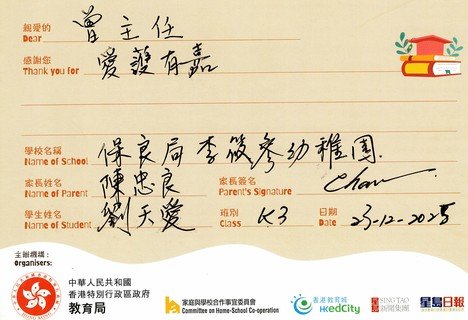 親愛的 曾主任
Dear
感謝您 愛護有嘉
Thank you for
學校名稱 保良局李筱參幼稚園
Name of School
家長姓名 陳忠良 家長簽名 Chan
Name of Parent Parent's Signature
學生姓名 劉天愛 班別 K3 日期 23-12-2025
Name of Student Class Date
主辦機構:
Organisers:
中華人民共和國
香港特別行政區政府
教育局
家庭與學校合作事宜委員會
Committee on Home-School Co-operation
香港教育城
HKedCity
星島 SING TAO
新聞集團
星島日報